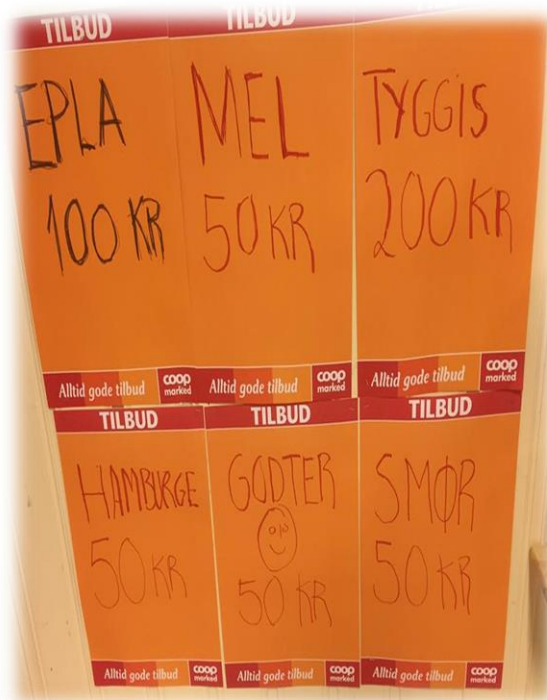 TILBUD
EPLA
100 KR
Alltid gode tilbud
coop
marked
TILBUD
MEL
50 KR
Alltid gode tilbud
coop
marked
TYGGIS
200 KR
Alltid gode tilbud
coop
marked
TILBUD
HAMBURGE
50 KR
Alltid gode tilbud
coop
marked
TILBUD
GODTER
50 KR
Alltid gode tilbud
coop
marked
TILBUD
SMØR
50 KR
Alltid gode tilbud
coop
marked